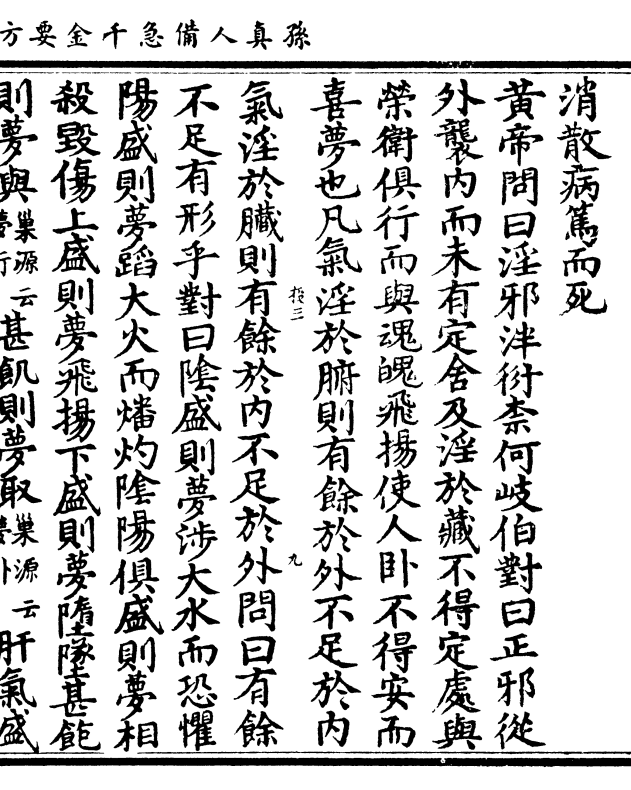 孫真人備急千金要方
消散病篤而死
黃帝問曰淫邪泮衍柰何岐伯對曰正邪從
外襲內而未有定舍及淫於藏不得定處與
榮衛俱行而與魂魄飛揚使人卧不得安而
喜夢也凡氣淫於腑則有餘於外不足於內
氣淫於臟則有餘於內不足於外問曰有餘
不足有形乎對曰陰盛則夢涉大水而恐懼
陽盛則夢蹈大火而燔灼陰陽俱盛則夢相
殺毀傷上盛則夢飛揚下盛則夢墮墜甚飽
則夢與巢源云夢行甚飢則夢取巢源云夢卧肝氣盛